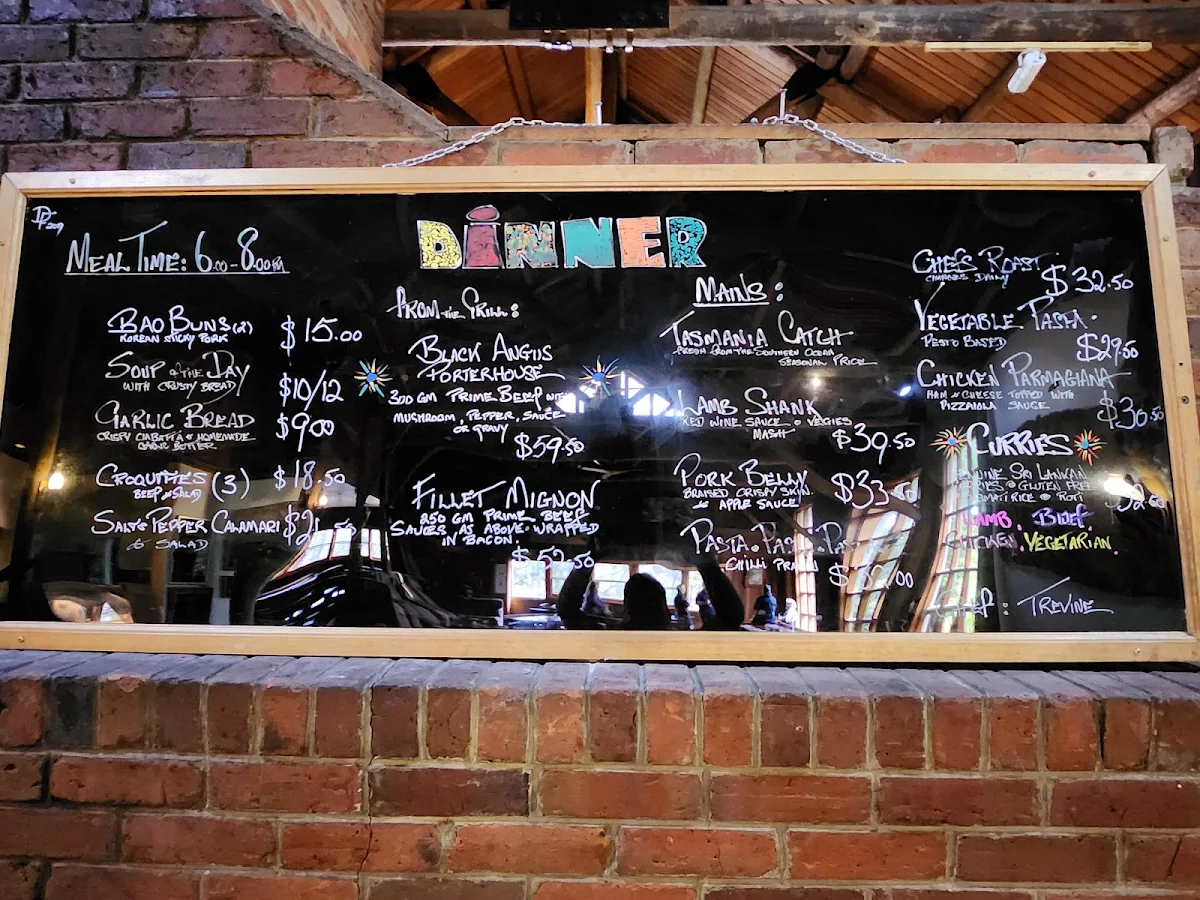 DINNER
MEAL TIME: 6.00 - 8.00PM
BAO BUNS (2) $15.00
KOREAN STICKY PORK
SOUP OF THE DAY
WITH CRUSTY BREAD $10/12
GARLIC BREAD $9.00
CRISPY CIABATTA & HOMEMADE
GARLIC BUTTER
CROQUETTES (3) $18.50
BEEF & SALAD
SALT & PEPPER CALAMARI
& SALAD
FROM THE GRILL:
BLACK ANGUS
PORTERHOUSE
300 GM PRIME BEEF WITH
MUSHROOM, PEPPER, SAUCE
OR GRAVY
$59.50
FILLET MIGNON
250 GM PRIME BEEF
SAUCES AS ABOVE WRAPPED
IN BACON.
$52.50
MAINS:
TASMANIA CATCH
FRESH FROM THE SOUTHERN OCEAN
SEASONAL PRICE
LAMB SHANK
RED WINE SAUCE & VEGIES
MASH $39.50
PORK BELLY
BRAISED CRISPY SKIN
& APPLE SAUCE
PASTA. PASTA.
CHILLI PRAWN
CHEF'S ROAST
CHANGES DAILY $32.50
VEGETABLE PASTA
PESTO BASED $29.50
CHICKEN PARMAGIANA
HAM & CHEESE TOPPED WITH
PIZZAIOLA SAUCE $30.50
CURRIES
SRI LANKAN
GLUTEN FREE
RICE & ROTI
LAMB. BEEF.
CHICKEN. VEGETARIAN.
CHEF: TREVINE